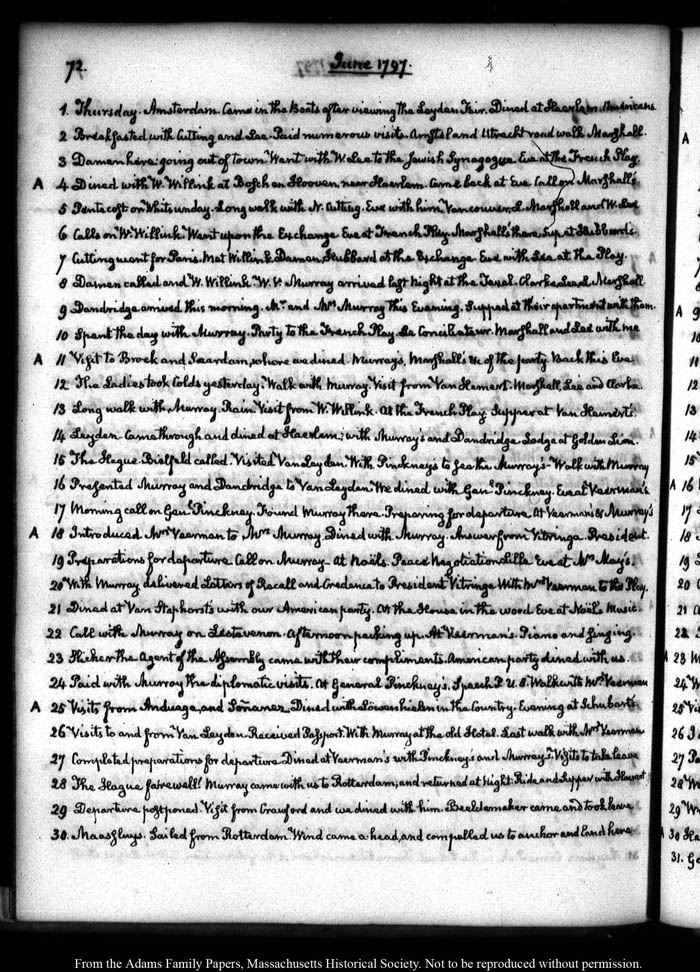 72.
June 1797.
1. Thursday. Amsterdam. Came in the Boats after viewing the Leyden Fair. Dined at Haerlem. Americans
2 Breakfasted with Cutting and Lee. Paid numerous visits. Amstel and Utrecht road walk. Marshall.
3 Damen here; going out of town. Went with W. Lee to the Jewish Synagogue Eve at the French Play.
A 4. Dined with W. Willink at Bosch en Hooven near Haerlem. Came back at Eve. Call on Marshall's
5 Pentecost or Whitsunday. Long walk with N. Cutting. Eve with him, Vancouver, L. Marshall and W. Lee
6 Calls on W. Willink. Went upon the Exchange. Eve at French Play. Marshall's there. Sup at Hubbard's.
7 Cutting went for Paris. Met Willink, Damen, Hubbard at the Exchange. Eve with Lee at the Play.
8 Damen called and W. Willink. W. V. Murray arrived last night at the Texel. Clarke Lee L. Marshall
9 Dandridge arrived this morning. Mr. and Mrs. Murray this Evening. Supped at their apartment with them.
10 Spent the day with Murray. Party to the French Play. Le Conciliateur. Marshall and Lee with me
A 11 Visit to Broek and Saardam, where we dined. Murray's, Marshall's &c of the party. Back this Eve
12 The Ladies took Colds yesterday. Walk with Murray. Visit from Van Hemert. Marshall, Lee and Clarke
13 Long walk with Murray. Rain. Visit from W. Willink. At the French Play. Supper at Van Hemert's.
14 Leyden. Came through and dined at Haerlem; with Murray's and Dandridge. Lodge at Golden Lion.
15 The Hague. Bielfeld called. Visited Van Leyden. With Pinckneys to see the Murray's. Walk with Murray
16 Presented Murray and Dandridge to Van Leyden. We dined with Genl. Pinckney. Eve at Veerman's
17 Morning call on Genl. Pinckney. Found Murray there. Preparing for departure. At Veerman's & Murray's
A 18 Introduced Mrs Veerman to Mrs. Murray. Dined with Murray. Answer from Vitringa. President.
19 Preparations for departure. Call on Murray. At Noëls. Peace Negotiation Lille. Eve at Mrs. May's.
20 With Murray delivered Letters of Recall and Credence to President Vitringa. With Mrs Veerman to the Play.
21 Dined at Van Staphorst's with our American party. At the House in the wood. Eve at Noëls. Music.
22 Call with Murray on Lestevenon. Afternoon packing up. At Veerman's. Piano and singing.
23 Slicher the Agent of the Assembly came with their compliments. American party dined with us.
24 Paid with Murray the diplomatic visits. At General Pinckney's. Speech P. U. S. Walk with Mrs Veerman
A 25 Visits from Anduaga, and Sonanez. Dined with Löwenhielm in the Country. Evening at Schubart's.
26 Visits to and from Van Leyden. Received Passport. With Murray at the old Hotel. Last walk with Mrs Veerman
27 Completed preparations for departure. Dined at Veerman's with Pinckney's and Murray's. Visits to take leave
28 The Hague farewell! Murray came with us to Rotterdam; and returned at night. Ride and Supper with
29 Departure postponed. Visit from Craufurd and we dined with him. Beeldemaker came and took leave
30. Maassluys. Sailed from Rotterdam. Wind came ahead, and compelled us to anchor and land here
A
A 9
10
11
12
13
14
15
A 16
17
18
19
20
21
22
A 23
24
25
26
27
28
29
A 30
31.
From the Adams Family Papers, Massachusetts Historical Society. Not to be reproduced without permission.